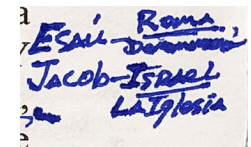 a
ESAÚ-ROMA,
JACOB-ISRAEL
LA IGLESIA